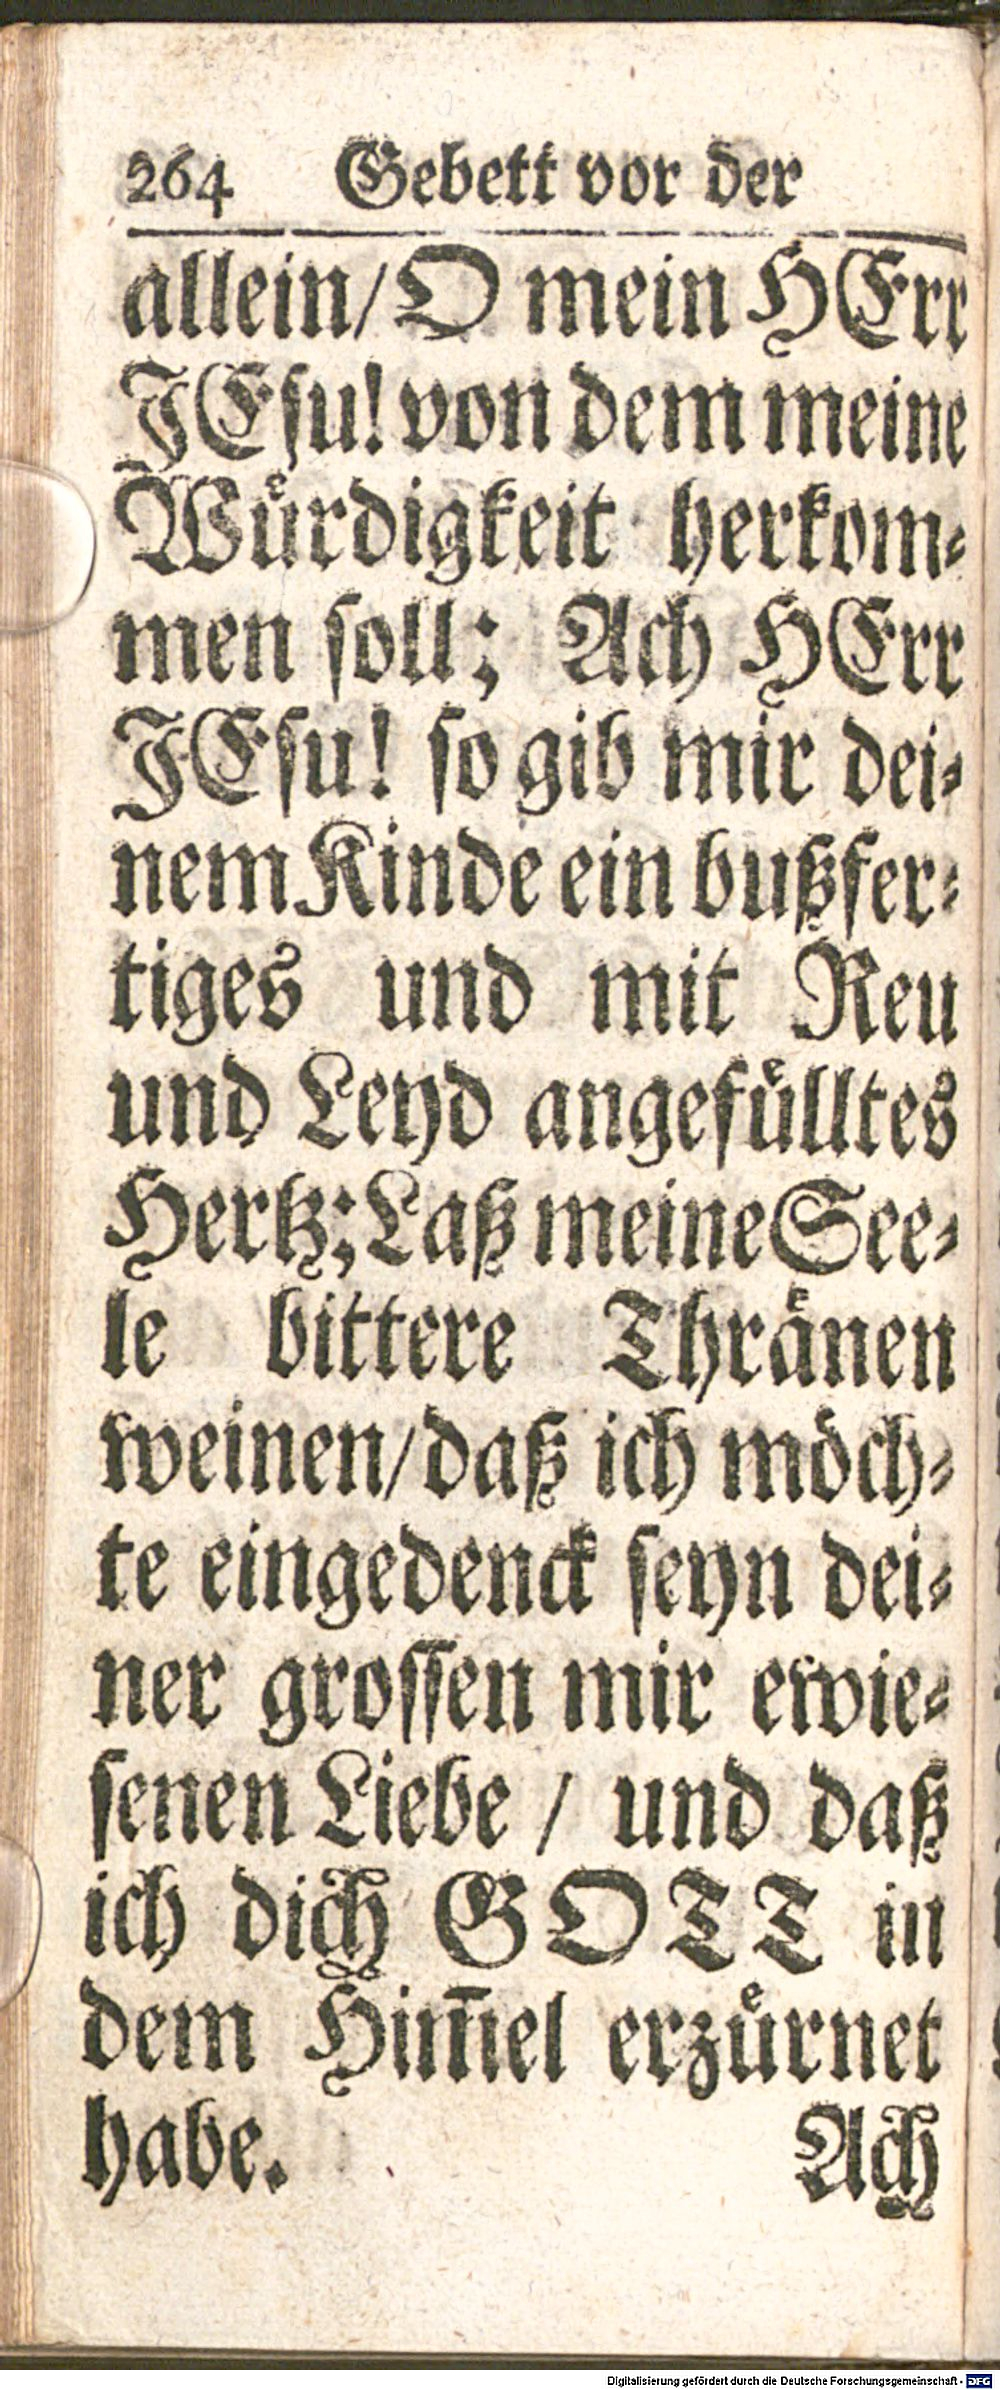 264 Gebett vor der
allein/ O mein HErr
JEsu! von dem meine
Wuͤrdigkeit herkom⸗
men soll; Ach HErr
JEsu! so gib mir dei⸗
nem Kinde ein bußfer⸗
tiges und mit Reu
und Leyd angefuͤlltes
Hertz; Laß meine See⸗
le bittere Thraͤnen
weinen/ daß ich moͤch⸗
te eingedenck seyn dei⸗
ner grossen mir erwie⸗
senen Liebe / und daß
ich dich GOTT in
dem Him̄el erzuͤrnet
habe. Ach
Digitalisierung gefördert durch die Deutsche Forschungsgemeinschaft - DFG